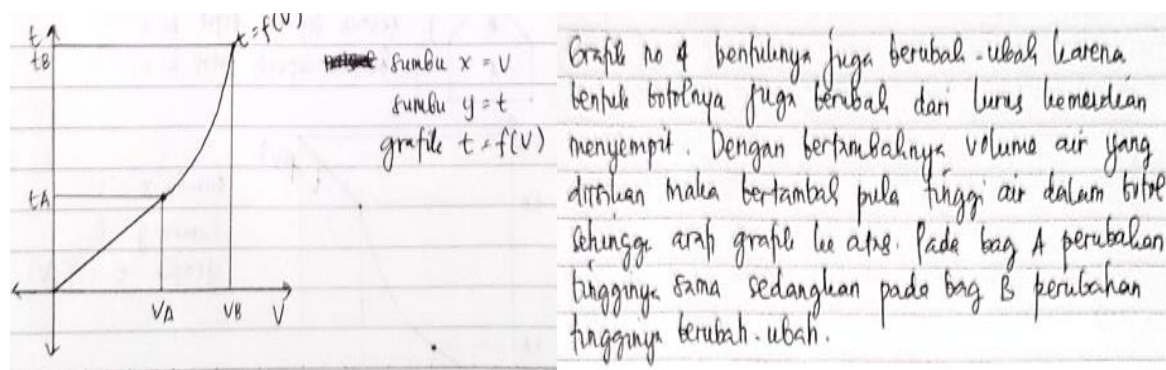 t
t = f(V)
tB
sumbu x = V
sumbu y = t
grafik t = f(V)
tA
VA VB V
Grafik no 4 bentuknya juga berubah-ubah karena
bentuk botolnya juga berubah dari lurus kemudian
menyempit. Dengan bertambahnya volume air yang
dituliskan maka bertambah pula tinggi air dalam botol
sehingga arah grafik ke atas. Pada bag A perubahan
tingginya sama sedangkan pada bag B perubahan
tingginya berubah-ubah.